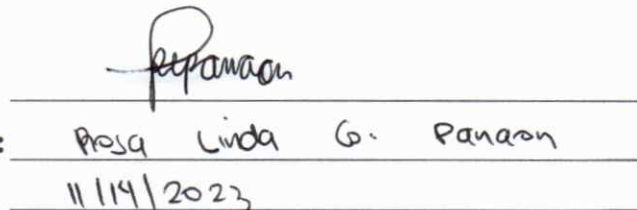 : Rosa Linda G. Panaon
11/14/2023